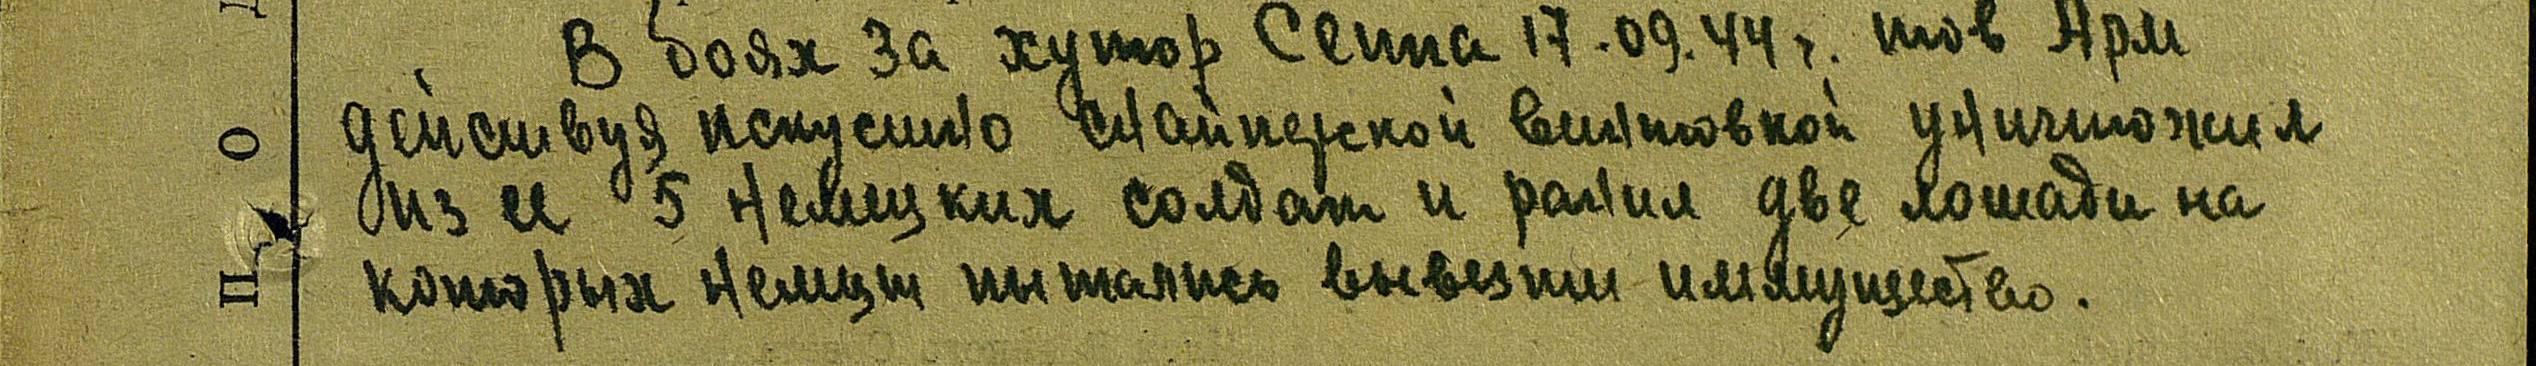 В боях за хутор Сенна 17.09.44 г. тов Арм
действуя искусно снайперской винтовкой уничтожил
из ее 5 немецких солдат и ранил две лошади на
которых немцы пытались вывезти имущество.
П О